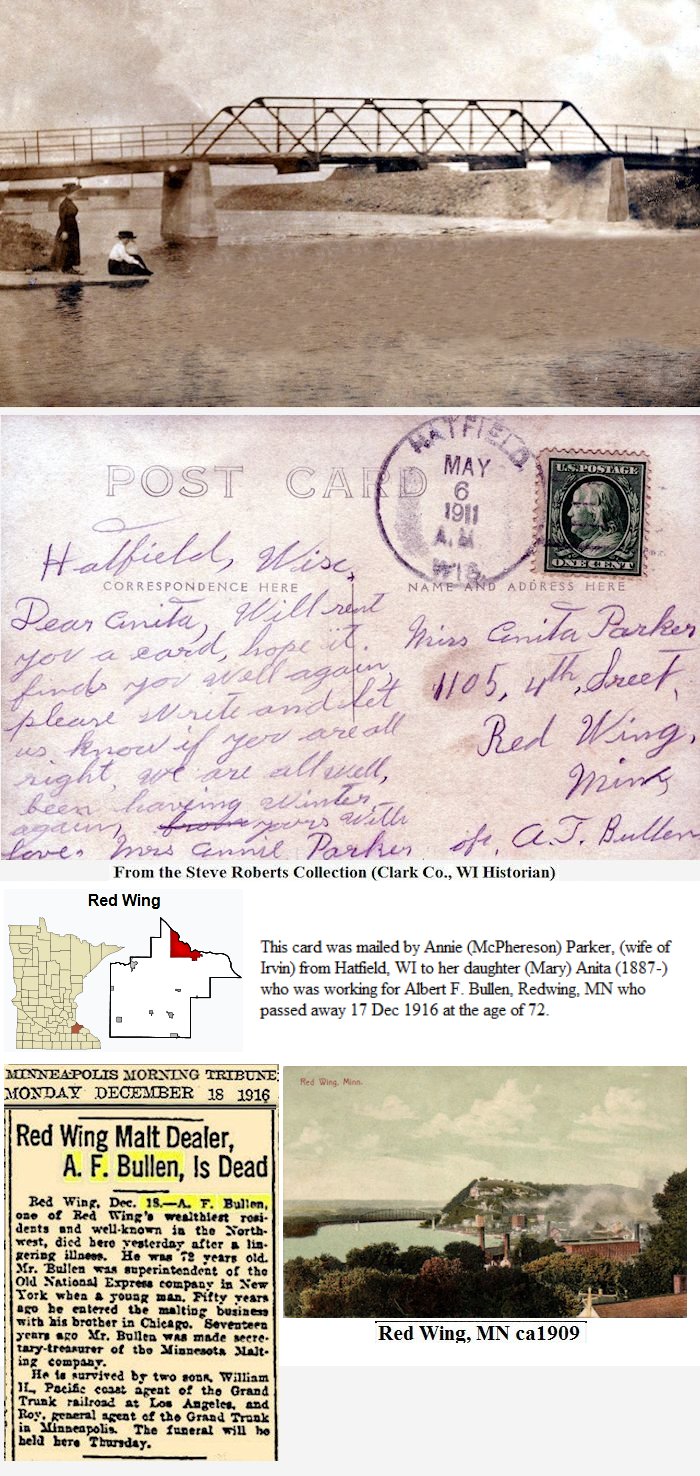 POST CARD
HATFIELD
MAY
6
1911
A.M.
WIS.
U.S. POSTAGE
ONE CENT
Hatfield, Wisc,
CORRESPONDENCE HERE
NAME AND ADDRESS HERE
Dear Anita, Will
you a card, hope it
finds you well again,
please write and let
us know if you are all
right, we are all well,
been having winter,
again, yours with
love. Mrs Annie Parker
Miss Anita Parker
1105, 4th, Sreet,
Red Wing,
Minn,
of, A.F. Bullen
From the Steve Roberts Collection (Clark Co., WI Historian)
Red Wing
This card was mailed by Annie (McPhereson) Parker, (wife of
Irvin) from Hatfield, WI to her daughter (Mary) Anita (1887-)
who was working for Albert F. Bullen, Redwing, MN who
passed away 17 Dec 1916 at the age of 72.
MINNEAPOLIS MORNING TRIBUNE
MONDAY DECEMBER 18 1916
Red Wing Malt Dealer,
A. F. Bullen, Is Dead
Red Wing, Dec. 18.—A. F. Bullen,
one of Red Wing's wealthiest resi-
dents and well-known in the North-
west, died here yesterday after a lin-
gering illness. He was 72 years old.
Mr. Bullen was superintendent of the
Old National Express company in New
York when a young man. Fifty years
ago he entered the malting business
with his brother in Chicago. Seventeen
years ago Mr. Bullen was made secre-
tary-treasurer of the Minnesota Malt-
ing company.
He is survived by two sons, William
H., Pacific coast agent of the Grand
Trunk railroad at Los Angeles, and
Roy, general agent of the Grand Trunk
in Minneapolis. The funeral will be
held here Thursday.
Red Wing, Minn.
Red Wing, MN ca1909